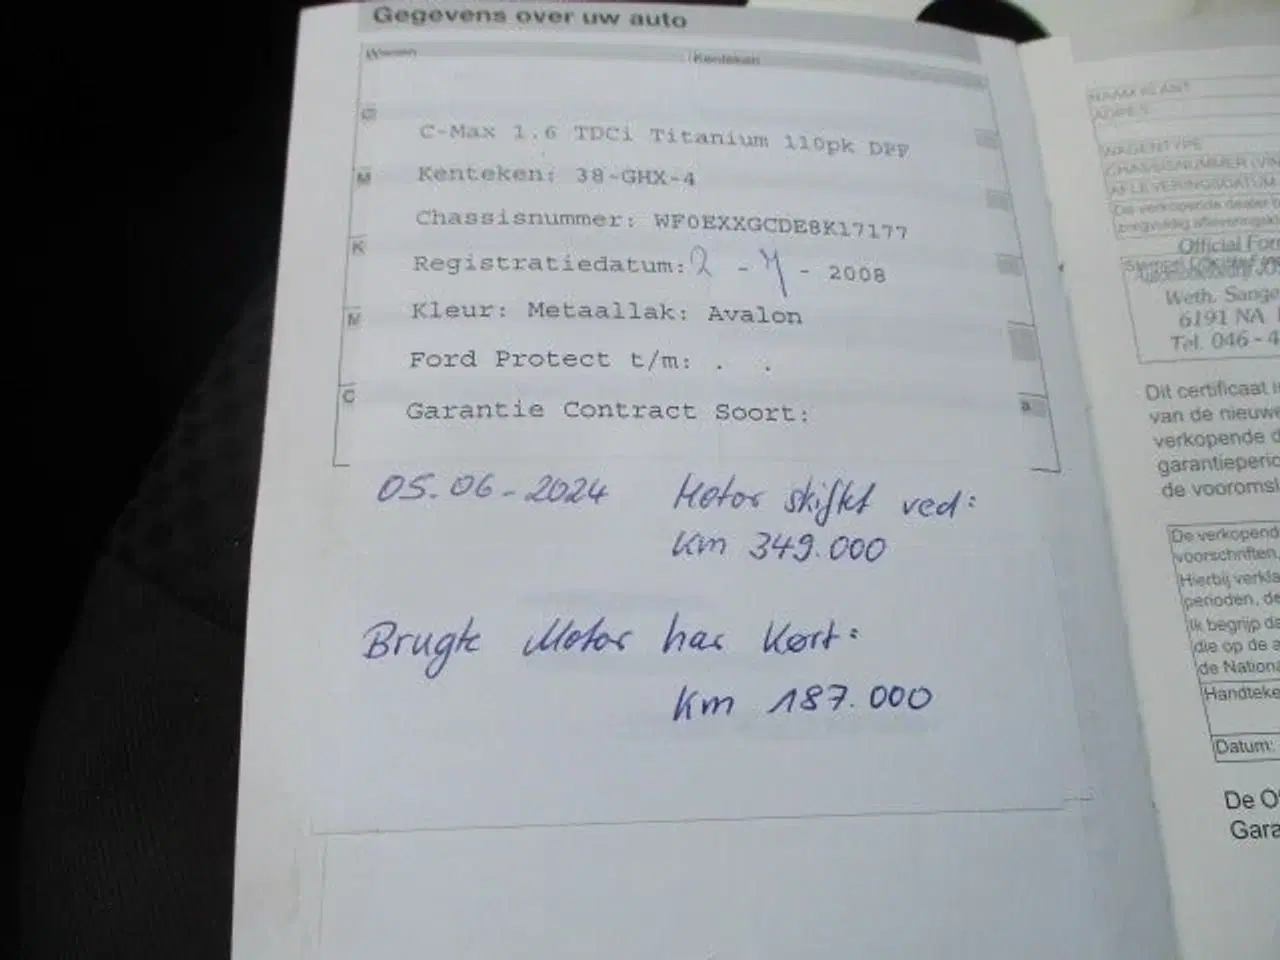 Gegevens over uw auto
Kenteken
C-Max 1.6 TDCi Titanium 110pk DPF
Kenteken: 38-GHX-4
Chassisnummer: WF0EXXGCDE8K17177
Registratiedatum: 2 - 7 - 2008
Kleur: Metaallak: Avalon
Ford Protect t/m: . .
Garantie Contract Soort:
05.06-2024 Motor skiftet ved:
Km 349.000
Brugte Motor har Kørt:
Km 187.000
NAAM KLANT
ADRES
WAGENTYPE
CHASSISNUMMER (VIN
AFLEVERINGSDATUM
De verkopende dealer
Official For
Weth. Sange
6191 NA
Tel. 046 - 4
Dit certificaat i
van de nieuwe
verkopende d
garantieperio
de vooromsl
De verkopend
voorschriften,
Hierbij verkla
perioden, de
Ik begrijp da
die op de a
de Nationa
Handteke
Datum:
De O
Gara